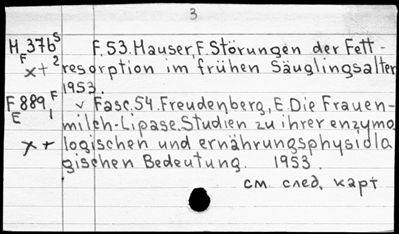 3
H 37b s F. 53. Hauser, F. Störungen der Fett-
F x+ 2 resorption im frühen Säuglingsalter
1953.
F 889 F v Fasc. 54. Freudenberg, E. Die Frauen-
E 1 milch-Lipase. Studien zu ihrer enzymo
x+ logischen und ernährungsphysiola
gischen Bedeutung. 1953.
см. след. карт